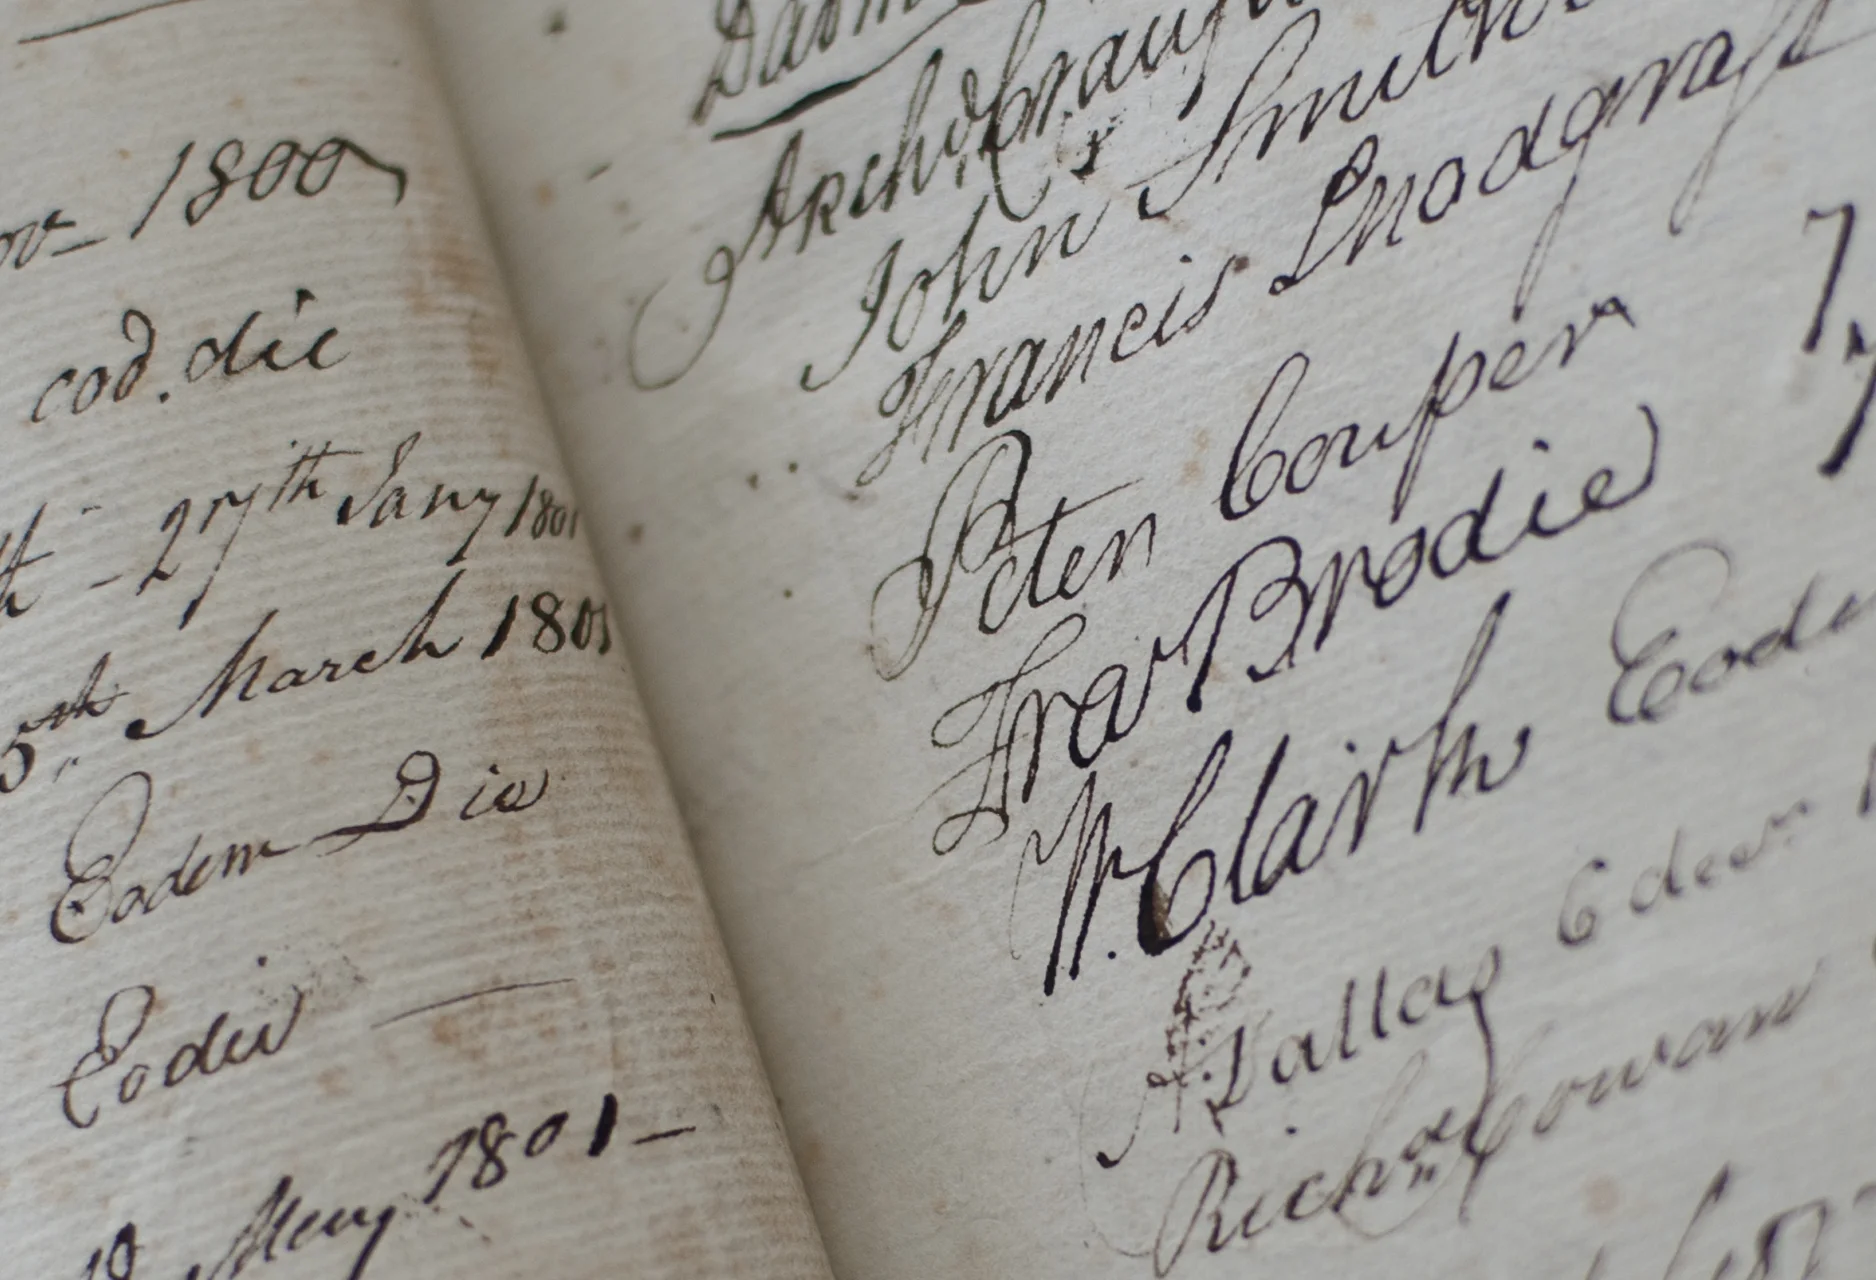 1800
eod. die
27th Jany 1801
5th March 1801
Eodem Die
Eodie
May 1801
Archd. Craufu
John Smith
Francis Snodgrass
Peter Couper
Fras Brodie
W. Clark Eode
A. Dallas 6 decr.
Richd. Cowan